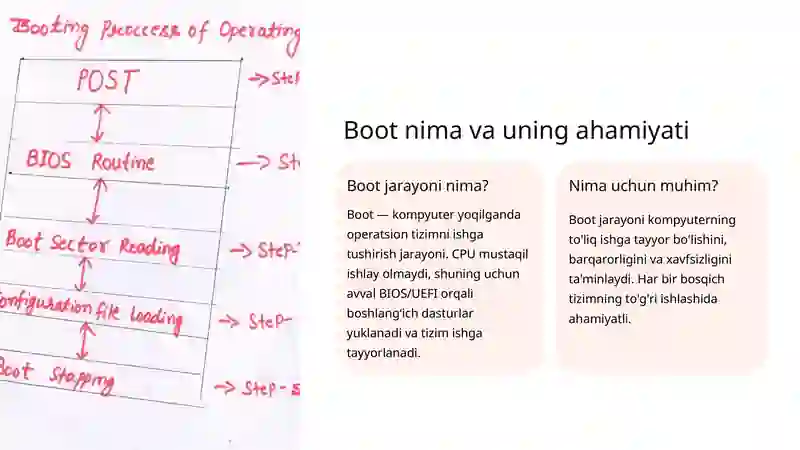 Booting Proccess of Operating
POST
BIOS Routine
Boot Sector Reading
Configuration file loading
Boot Stapping
Step-
Step-5
Boot nima va uning ahamiyati
Boot jarayoni nima?
Boot — kompyuter yoqilganda
operatsion tizimni ishga
tushirish jarayoni. CPU mustaqil
ishlay olmaydi, shuning uchun
avval BIOS/UEFI orqali
boshlang‘ich dasturlar
yuklanadi va tizim ishga
tayyorlanadi.
Nima uchun muhim?
Boot jarayoni kompyuterning
to'liq ishga tayyor bo'lishini,
barqarorligini va xavfsizligini
ta'minlaydi. Har bir bosqich
tizimning to'g'ri ishlashida
ahamiyatli.